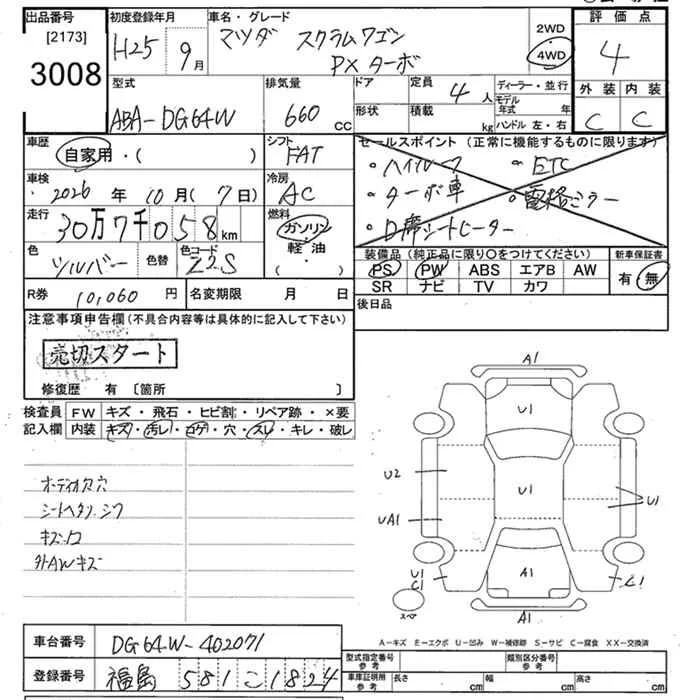 出品番号
[2173]
3008
初度登録年月
H25 9月
車名・グレード
マツダ スクラムワゴン
PXターボ
2WD
4WD
評価点
4
外装 内装
C C
型式
ABA-DG64W
排気量
660 cc
ドア
形状
定員 4人
積載 kg
ディーラー・並行
モデル年式 年
ハンドル 左・右
車歴
自家用・( )
シフト
FAT
セールスポイント (正常に機能するものに限ります)
・ハイルーフ ・ETC
・ターボ車 ・電格ミラー
・D席シートヒーター
車検
2026年 10月(7日)
冷房
AC
走行
30万7千058km
燃料
ガソリン
軽油
( ・ )
色
シルバー
色替
色コード
Z2S
装備品 (純正品に限り〇をつけてください)
PS PW ABS エアB AW
SR ナビ TV カワ
新車保証書
有・無
R券 10,060円
名変期限 月 日
後日品
注意事項申告欄(不具合内容等は具体的に記入して下さい)
売切スタート
修復歴 有〔箇所 〕
検査員 FW キズ・飛石・ヒビ割・リペア跡・×要
記入欄 内装 キズ・汚レ・コゲ・穴・スレ・キレ・破レ
オーディオ欠穴
シートヘタリ.シワ
外AWキズ
A1
U1
U2
U1
U1
UA1
U1
C1
A1
C1
A1
スペア
A－キズ E－エクボ U－凹み W－補修跡 S－サビ C－腐食 XX－交換済
車台番号 DG64W-402071
登録番号 福島 581 こ 1824
型式指定番号
参考
類別区分番号
参考
車庫証明用
参考
長さ cm 幅 cm 高さ cm